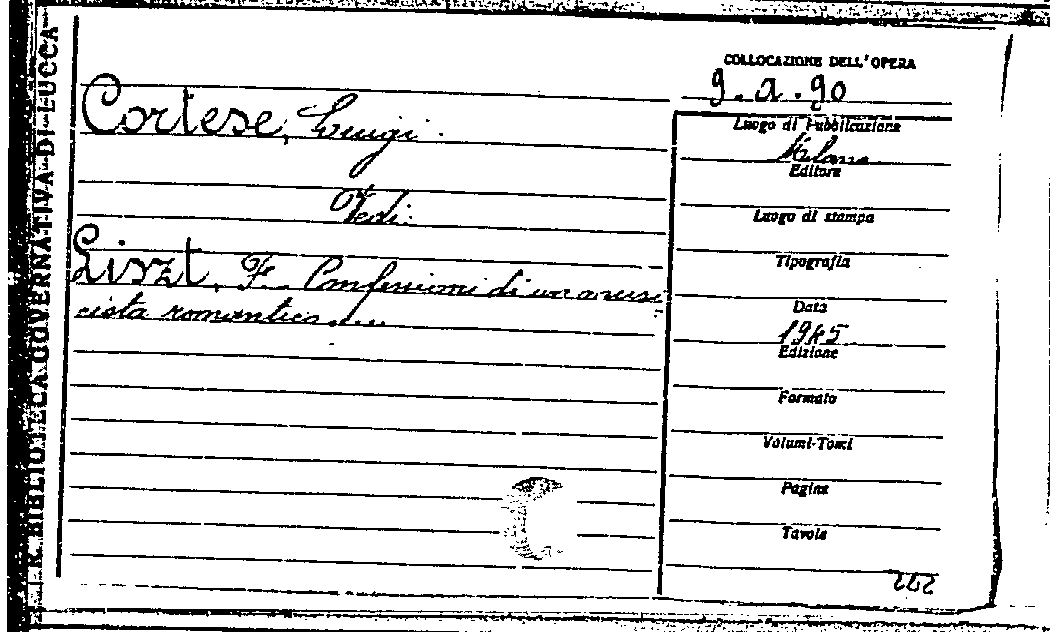 R. BIBLIOTECA GOVERNATIVA DI LUCCA
COLLOCAZIONE DELL'OPERA
9.a.90
Cortese, Luigi.
Vedi:
Liszt, F. Confessioni di un musi
cista romantico....
Luogo di Pubblicazione
Milano
Editore
Luogo di stampa
Tipografia
Data
1945
Edizione
Formato
Volumi-Tomi
Pagine
Tavole
242